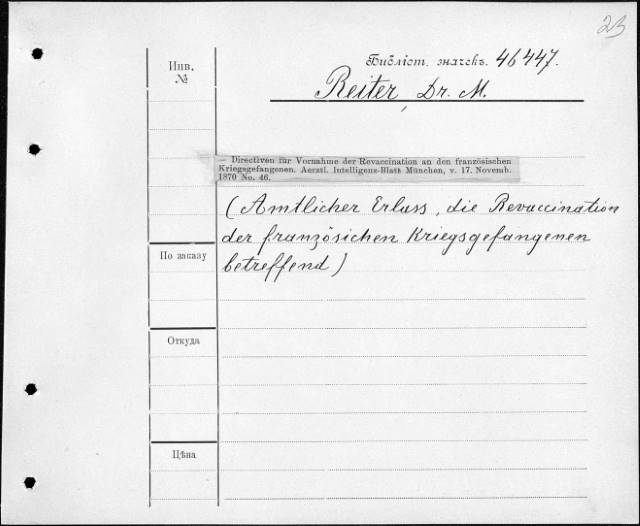 23
Инв.
№
Библіот. значекъ. 46447.
Reiter, Dr. M.
— Directiven für Vornahme der Revaccination an den französischen
Kriegsgefangenen. Aerztl. Intelligenz-Blatt München, v. 17. Novemb.
1870 No. 46.
(Amtlicher Erlass, die Revaccination
der französichen Kriegsgefangenen
betreffend)
По заказу
Откуда
Цѣна